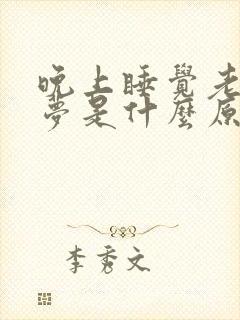 晚上睡覺老
夢是什麼原
李秀文